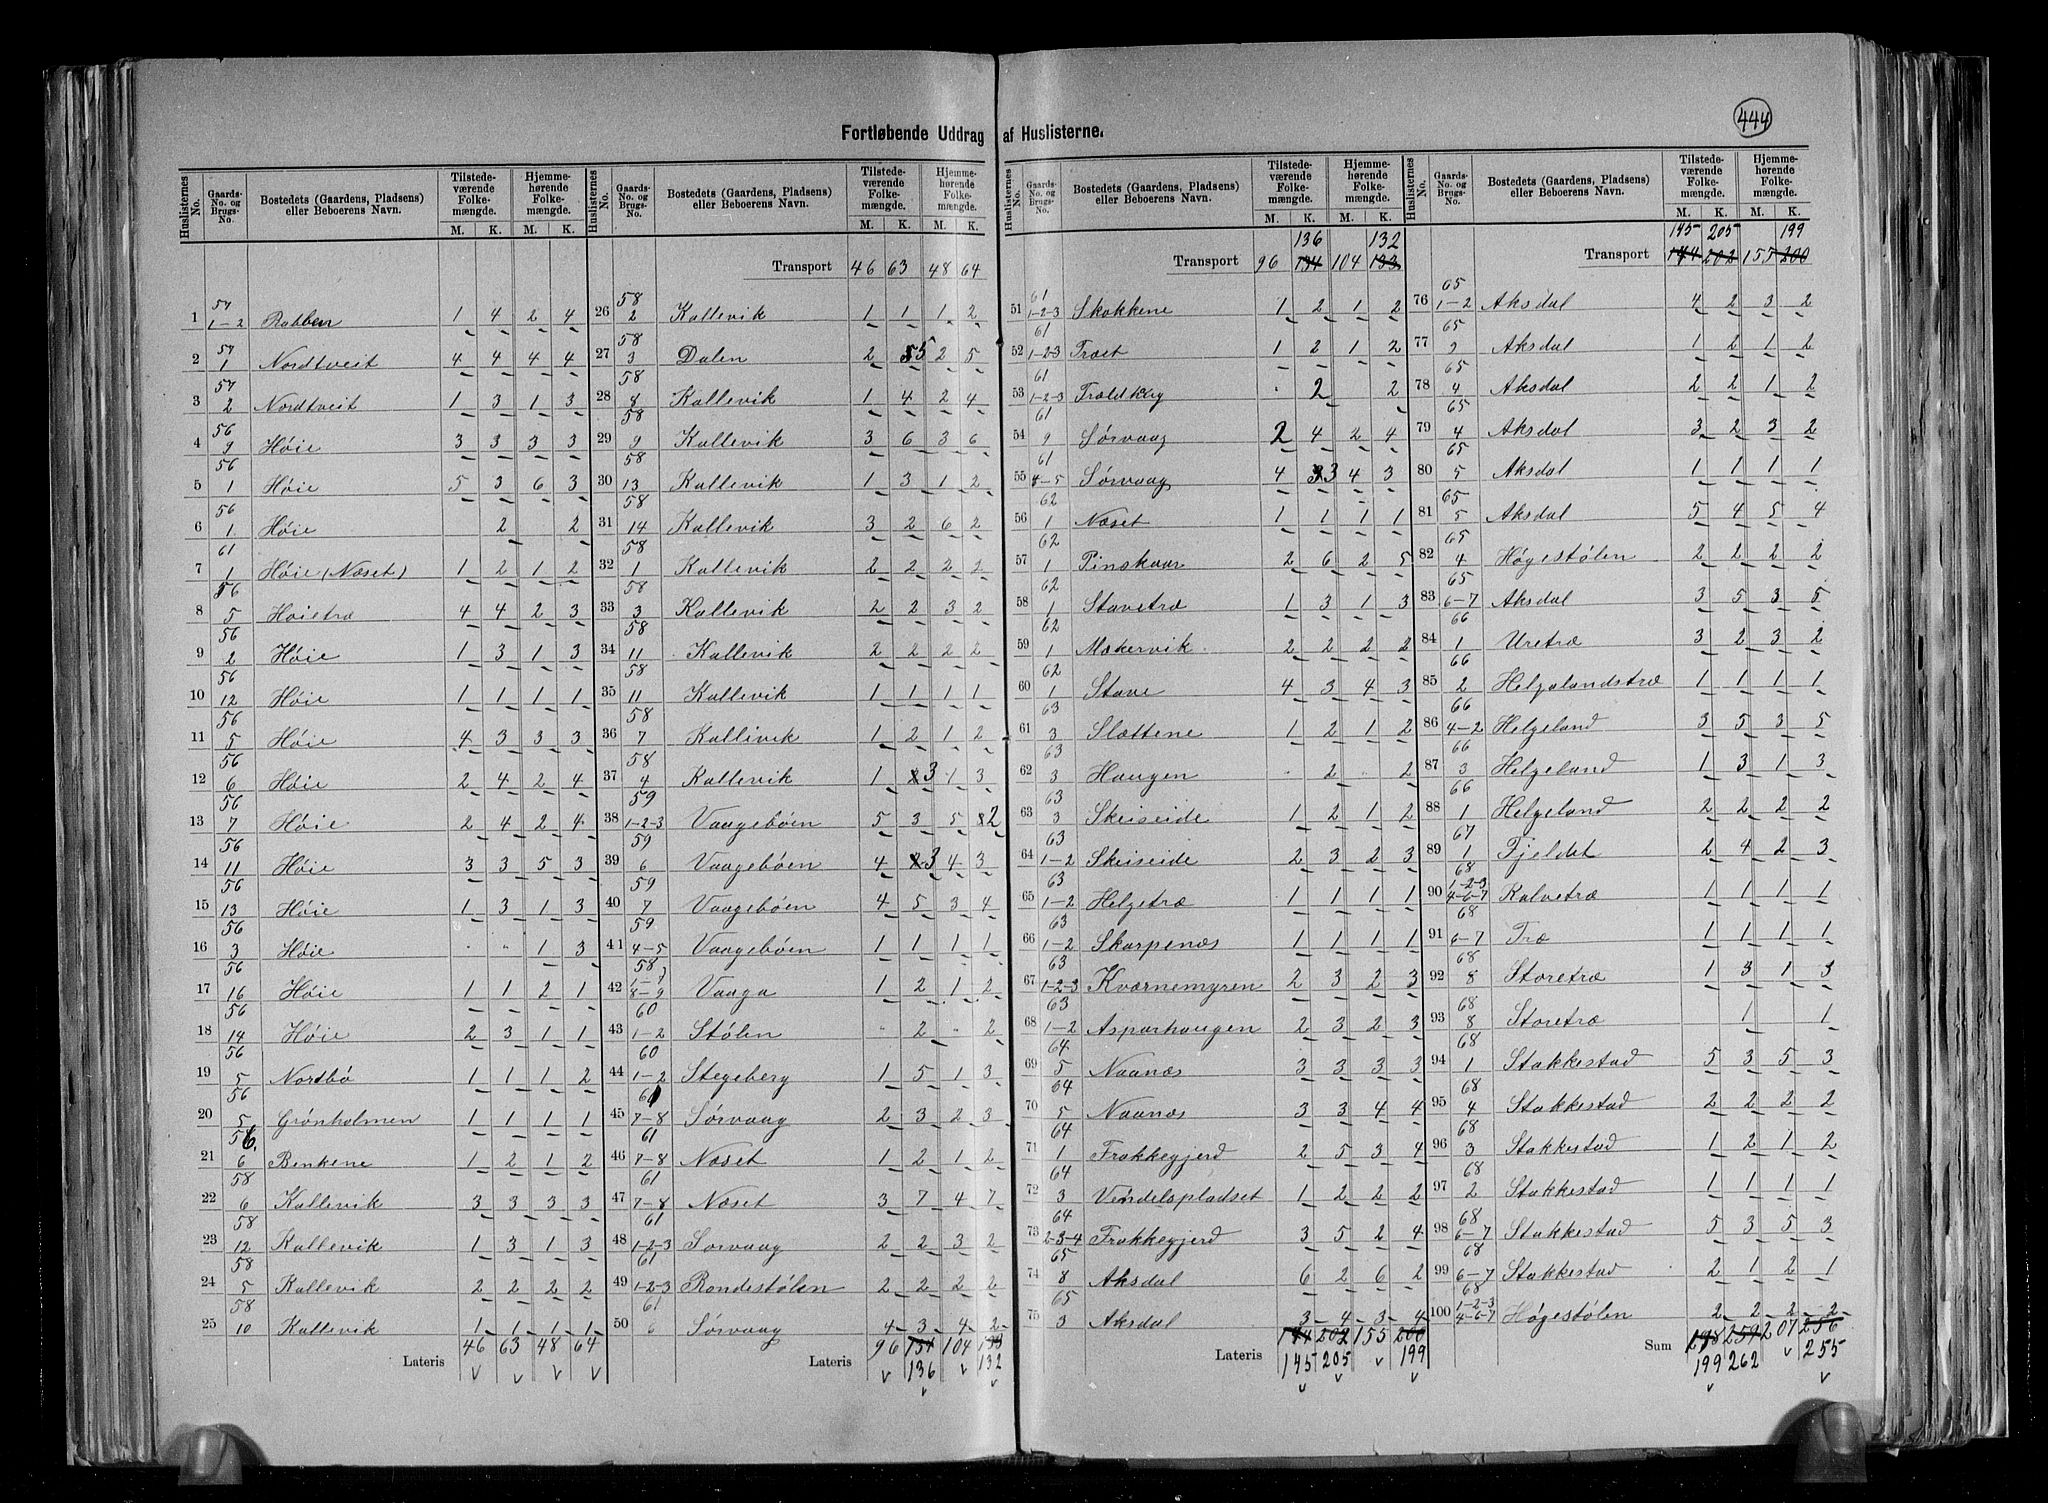 444
Fortløbende Uddrag af Huslisterne.
Huslisternes No. | Gaards-No. og Brugs-No. | Bostedets (Gaardens, Pladsens) eller Beboerens Navn. | Tilstedeværende Folkemængde. M. K. | Hjemmehørende Folkemængde. M. K.
1 57 1-2 Rabben 1 4 2 4
2 57 1 Nordtveit 4 4 4 4
3 57 2 Nordtveit 1 3 1 3
4 56 9 Høie 3 3 3 3
5 56 1 Høie 5 3 6 3
6 56 1 Høie 2 2
7 61 1 Høie (Næset) 1 2 1 2
8 56 5 Høietræ 4 4 2 3
9 56 2 Høie 1 3 1 3
10 56 12 Høie 1 1 1 1
11 56 5 Høie 4 3 3 3
12 56 6 Høie 2 4 2 4
13 56 7 Høie 2 4 2 4
14 56 11 Høie 3 3 5 3
15 56 13 Høie 1 3 1 3
16 56 3 Høie " " 1 3
17 56 16 Høie 1 1 2 1
18 56 14 Høie 2 3 1 1
19 56 5 Nordbø 1 1 1 2
20 56 5 Grønholmen 1 1 1 1
21 56 6 Benkene 1 2 1 2
22 58 6 Kallevik 3 3 3 3
23 58 12 Kallevik 1 3 1 3
24 58 5 Kallevik 2 2 2 2
25 58 10 Kallevik 1 1 1 1
Lateris 46 63 48 64
Huslisternes No. | Gaards-No. og Brugs-No. | Bostedets (Gaardens, Pladsens) eller Beboerens Navn. | Tilstedeværende Folkemængde. M. K. | Hjemmehørende Folkemængde. M. K.
Transport 46 63 48 64
26 58 2 Kallevik 1 1 1 2
27 58 3 Dalen 2 5 2 5
28 58 8 Kallevik 1 4 2 4
29 58 9 Kallevik 3 6 3 6
30 58 13 Kallevik 1 3 1 2
31 58 14 Kallevik 3 2 6 2
32 58 1 Kallevik 2 2 2 2
33 58 3 Kallevik 2 2 3 2
34 58 11 Kallevik 2 2 2 2
35 58 11 Kallevik 1 1 1 1
36 58 7 Kallevik 1 2 1 2
37 58 4 Kallevik 1 3 1 3
38 59 1-2-3 Vaagebøen 5 3 5 2
39 59 6 Vaagebøen 4 3 4 3
40 59 7 Vaagebøen 4 5 3 4
41 59 4-5 Vaagebøen 1 1 1 1
42 58 1-7 8-9 Vaaga 1 2 1 2
43 60 1-2 Stølen " 2 " 2
44 60 1-2 Stegeberg 1 5 1 3
45 61 7-8 Sørvaag 2 3 2 3
46 61 7-8 Næset 1 2 1 2
47 61 7-8 Næset 3 7 4 7
48 61 1-2-3 Sørvaag 2 2 3 2
49 61 1-2-3 Rondestølen 2 2 2 2
50 61 6 Sørvaag 4 3 4 2
Lateris 96 134 104 133
136 132
Huslisternes No. | Gaards-No. og Brugs-No. | Bostedets (Gaardens, Pladsens) eller Beboerens Navn. | Tilstedeværende Folkemængde. M. K. | Hjemmehørende Folkemængde. M. K.
136 132
Transport 96 134 104 133
51 61 1-2-3 Skokkene 1 2 1 2
52 61 1-2-3 Træet 1 2 1 2
53 61 1-2-3 Troldberg . 2 2
54 61 9 Sørvaag 2 4 2 4
55 61 4-5 Sørvaag 4 3 4 3
56 62 1 Næset 1 1 1 1
57 62 1 Pinskaar 2 6 2 5
58 62 1 Stavetræ 1 3 1 3
59 62 1 Mækervik 2 2 2 2
60 62 1 Stave 4 3 4 3
61 63 3 Slættene 1 2 1 2
62 63 3 Haugen . 2 2
63 63 3 Skeiseide 1 2 1 2
64 63 1-2 Skeiseide 2 3 2 3
65 63 1-2 Helgetræ 1 1 1 1
66 63 1-2 Skarpenæs 1 1 1 1
67 63 1-2-3 Kværnemyren 2 3 2 3
68 63 1-2 Asparhaugen 2 3 2 3
69 64 5 Naanæs 3 3 3 3
70 64 5 Naanæs 3 3 4 4
71 64 1 Frakkegjerd 2 5 3 4
72 64 3 Vendelspladset 1 2 2 2
73 64 2-3-4 Frakkegjerd 3 5 2 4
74 65 8 Aksdal 6 2 6 2
75 65 3 Aksdal 3 4 3 4
Lateris 144 202 155 200
145 205 199
Huslisternes No. | Gaards-No. og Brugs-No. | Bostedets (Gaardens, Pladsens) eller Beboerens Navn. | Tilstedeværende Folkemængde. M. K. | Hjemmehørende Folkemængde. M. K.
145 205 199
Transport 144 202 155 200
76 65 1-2 Aksdal 4 2 3 2
77 65 9 Aksdal 1 2 1 2
78 65 4 Aksdal 2 2 1 2
79 65 4 Aksdal 3 2 3 2
80 65 5 Aksdal 1 1 1 1
81 65 5 Aksdal 5 4 5 4
82 65 4 Høgestølen 2 2 2 2
83 65 6-7 Aksdal 3 5 3 5
84 66 1 Uretræ 3 2 3 2
85 66 2 Helgalandstræ 1 1 1 1
86 66 4-2 Helgeland 3 5 3 5
87 66 3 Helgeland 1 3 1 3
88 66 1 Helgeland 2 2 2 2
89 67 1 Fjeldet 2 4 2 3
90 68 1-2-3 4-6-7 Kalvetræ 1 1 1 1
91 68 6-7 Træ 1 1 1 1
92 68 8 Storetræ 1 3 1 3
93 68 8 Storetræ 1 1
94 68 1 Stakkestad 5 3 5 3
95 68 4 Stakkestad 2 2 2 2
96 68 3 Stakkestad 1 2 1 2
97 68 2 Stakkestad 1 1 1 1
98 68 6-7 Stakkestad 5 3 5 3
99 68 6-7 Stakkestad 2 1 2 1
100 68 1-2-3 4-6-7 Høgestølen 2 2 2 2
Sum 198 259 207 256
199 262 255